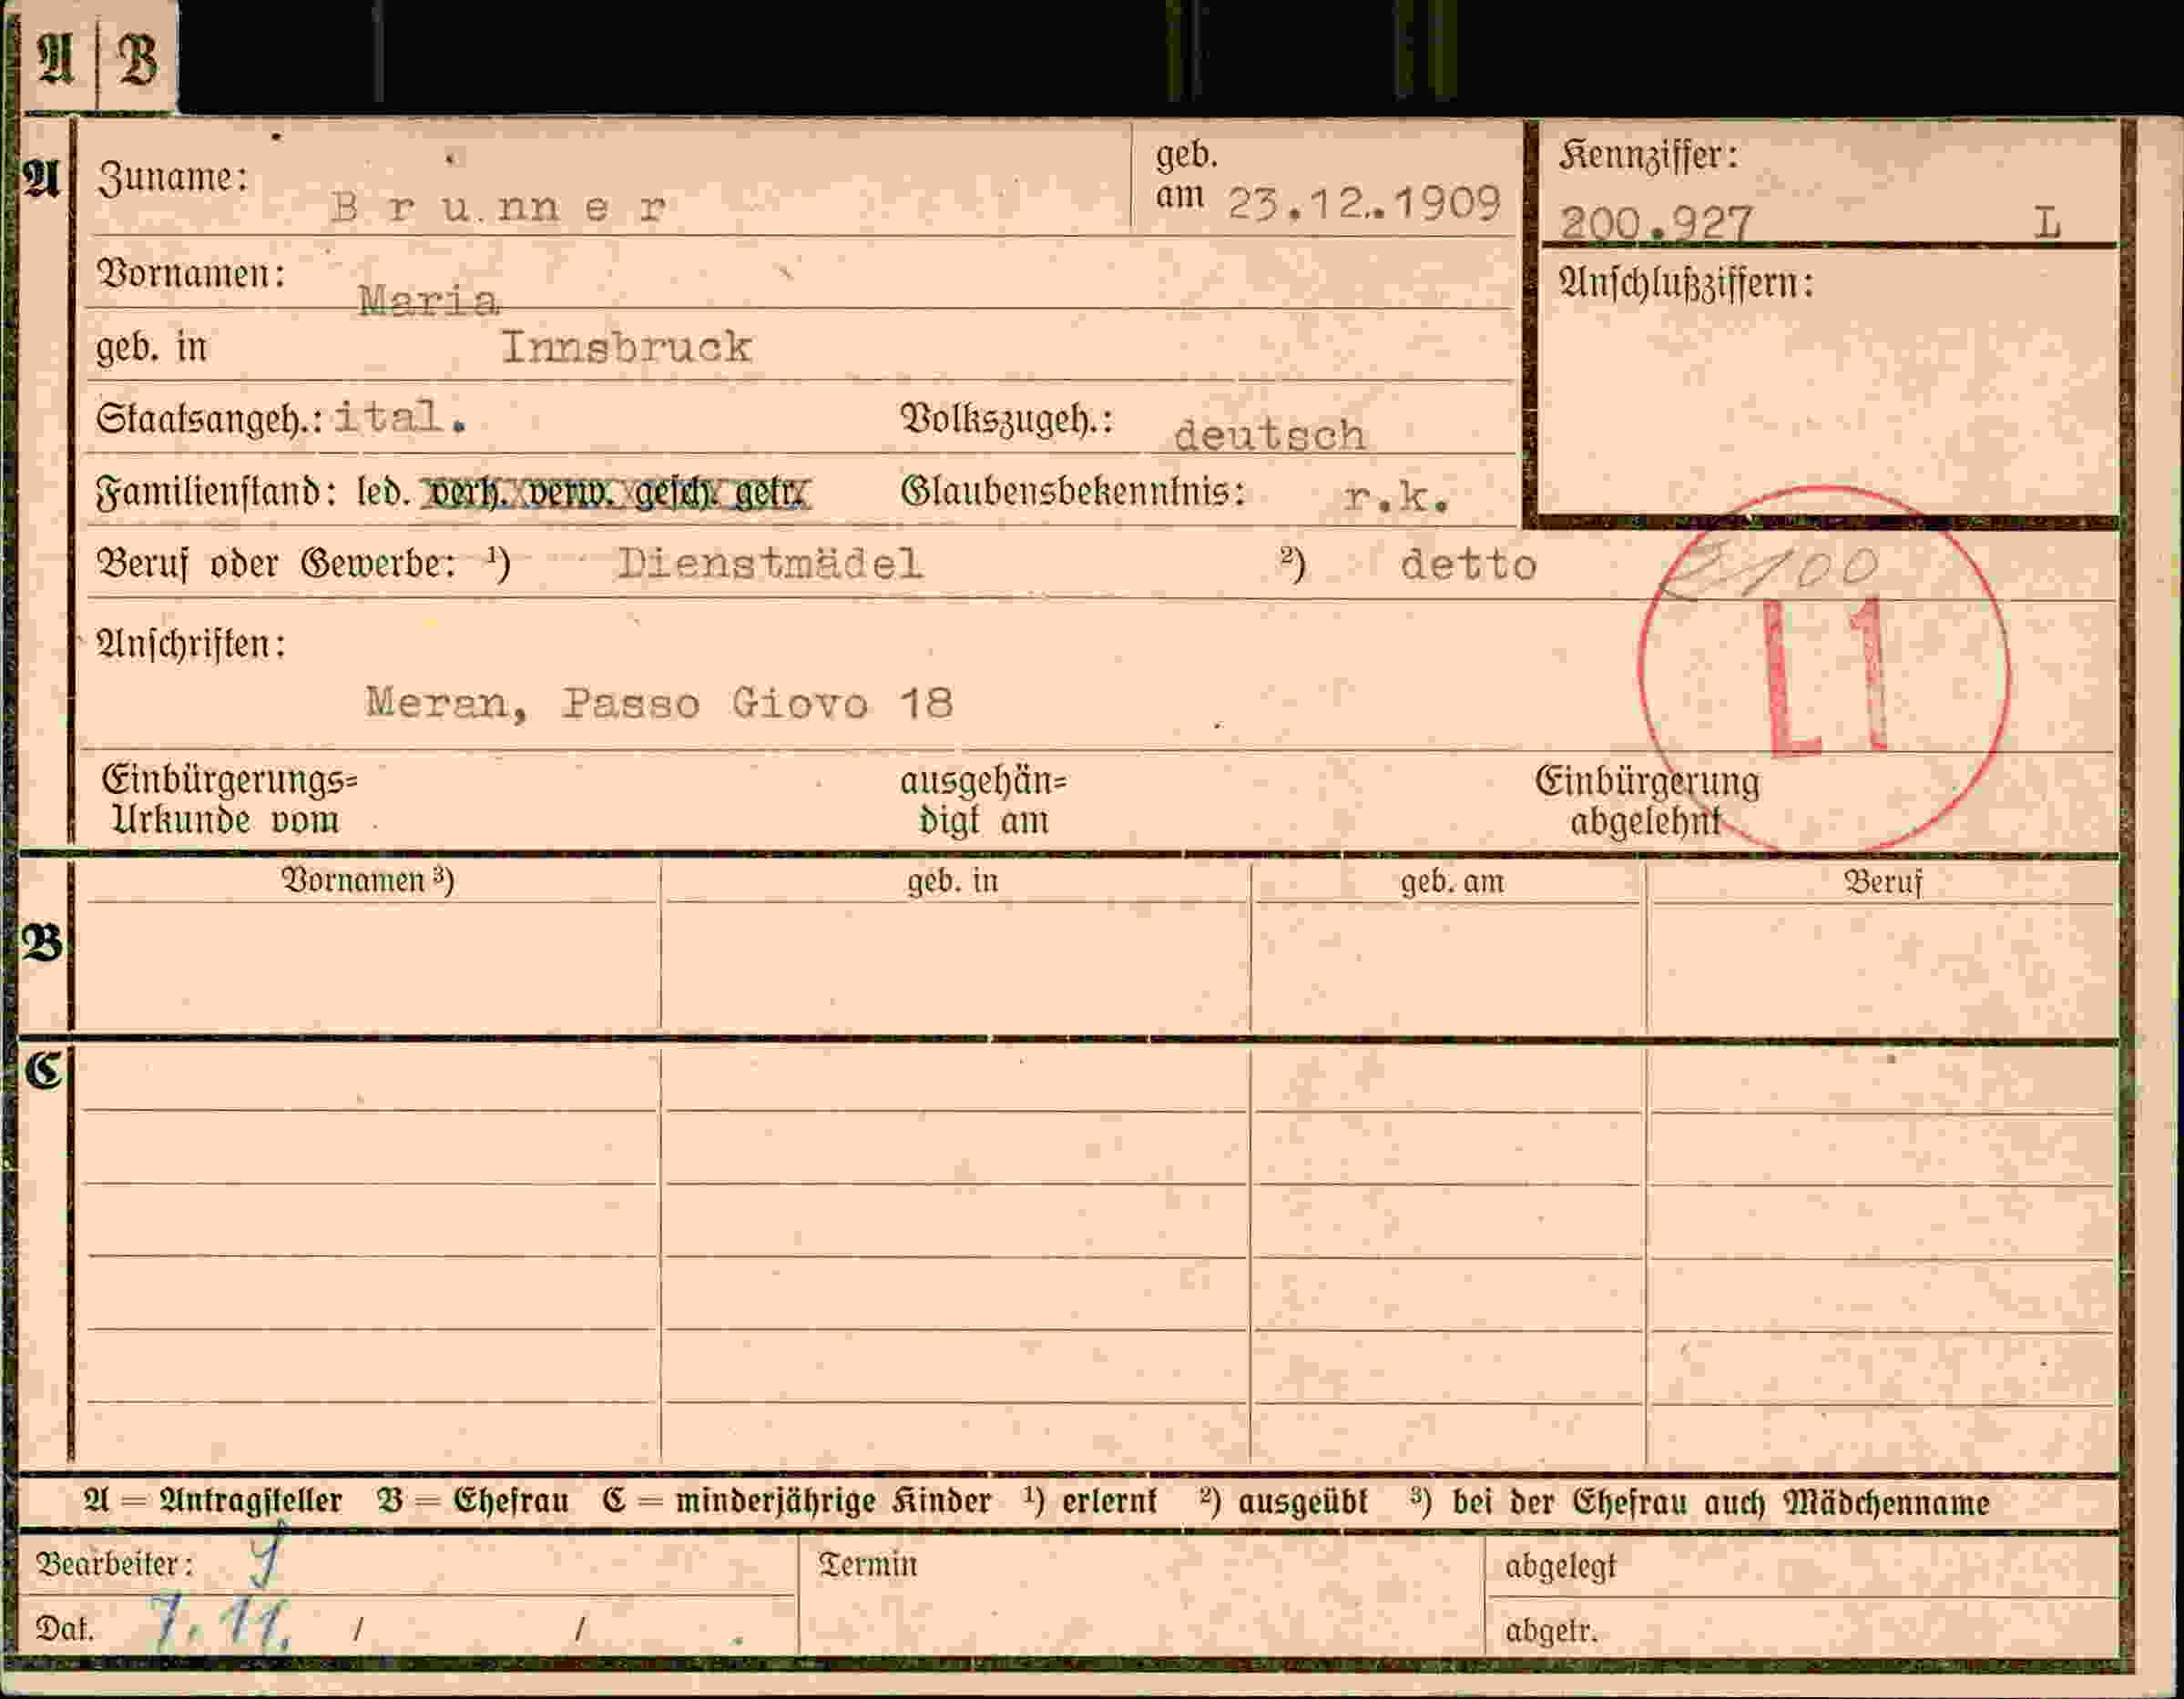 A B
A Zuname: Brunner geb. am 23.12.1909 Kennziffer: 200.927 L
Vornamen: Maria Anschlußziffern:
geb. in Innsbruck
Staatsangeh.: ital. Volkszugeh.: deutsch
Familienstand: led. verh. verw. gesch. getr. Glaubensbekenntnis: r.k.
Beruf oder Gewerbe: ¹) Dienstmädel ²) detto
L1
Anschriften:
Meran, Passo Giovo 18
Einbürgerungs= ausgehän= Einbürgerung
Urkunde vom digt am abgelehnt
Vornamen ³) geb. in geb. am Beruf
B
C
A = Antragsteller B = Ehefrau C = minderjährige Kinder ¹) erlernt ²) ausgeübt ³) bei der Ehefrau auch Mädchenname
Bearbeiter: Termin abgelegt
Dat. 7.11. / / abgetr.